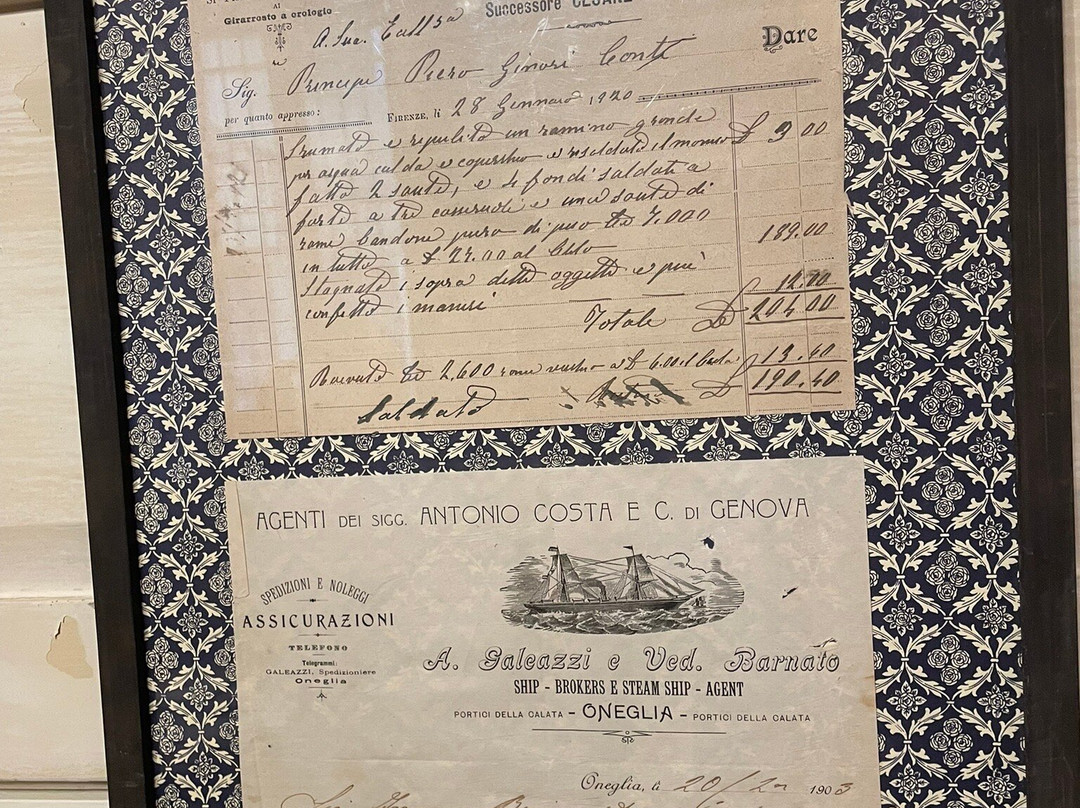 AI
Girarrosto a orologio
Successore
A Sua
Dare
Sig. Principe Piero Ginori Conti
per quanto appresso:
FIRENZE, li 28 Gennaio 1920
e ripulito un ramino grande £ 3 00
per acqua calda e coperchio e risaldato il manico
fatto 2 sauté, e 4 fondi saldati a
forte a tre casseruole e una sauté di
rame bandone puro di peso 7.000
in tutto a £ 27.00 al Kilo 189.00
Stagnato i sopra detti oggetti e più
i manici
Totale £ 204 00
2,600 rame vecchio a £ 13.60
Saldato £ 190.40
AGENTI DEI SIGG. ANTONIO COSTA E C. DI GENOVA
SPEDIZIONI E NOLEGGI
ASSICURAZIONI
TELEFONO
Telegrammi:
GALEAZZI, Spedizioniere
Oneglia
A. Galeazzi e Ved. Barnato
SHIP - BROKERS E STEAM SHIP - AGENT
PORTICI DELLA CALATA - ONEGLIA - PORTICI DELLA CALATA
Oneglia, li 20/ 1903